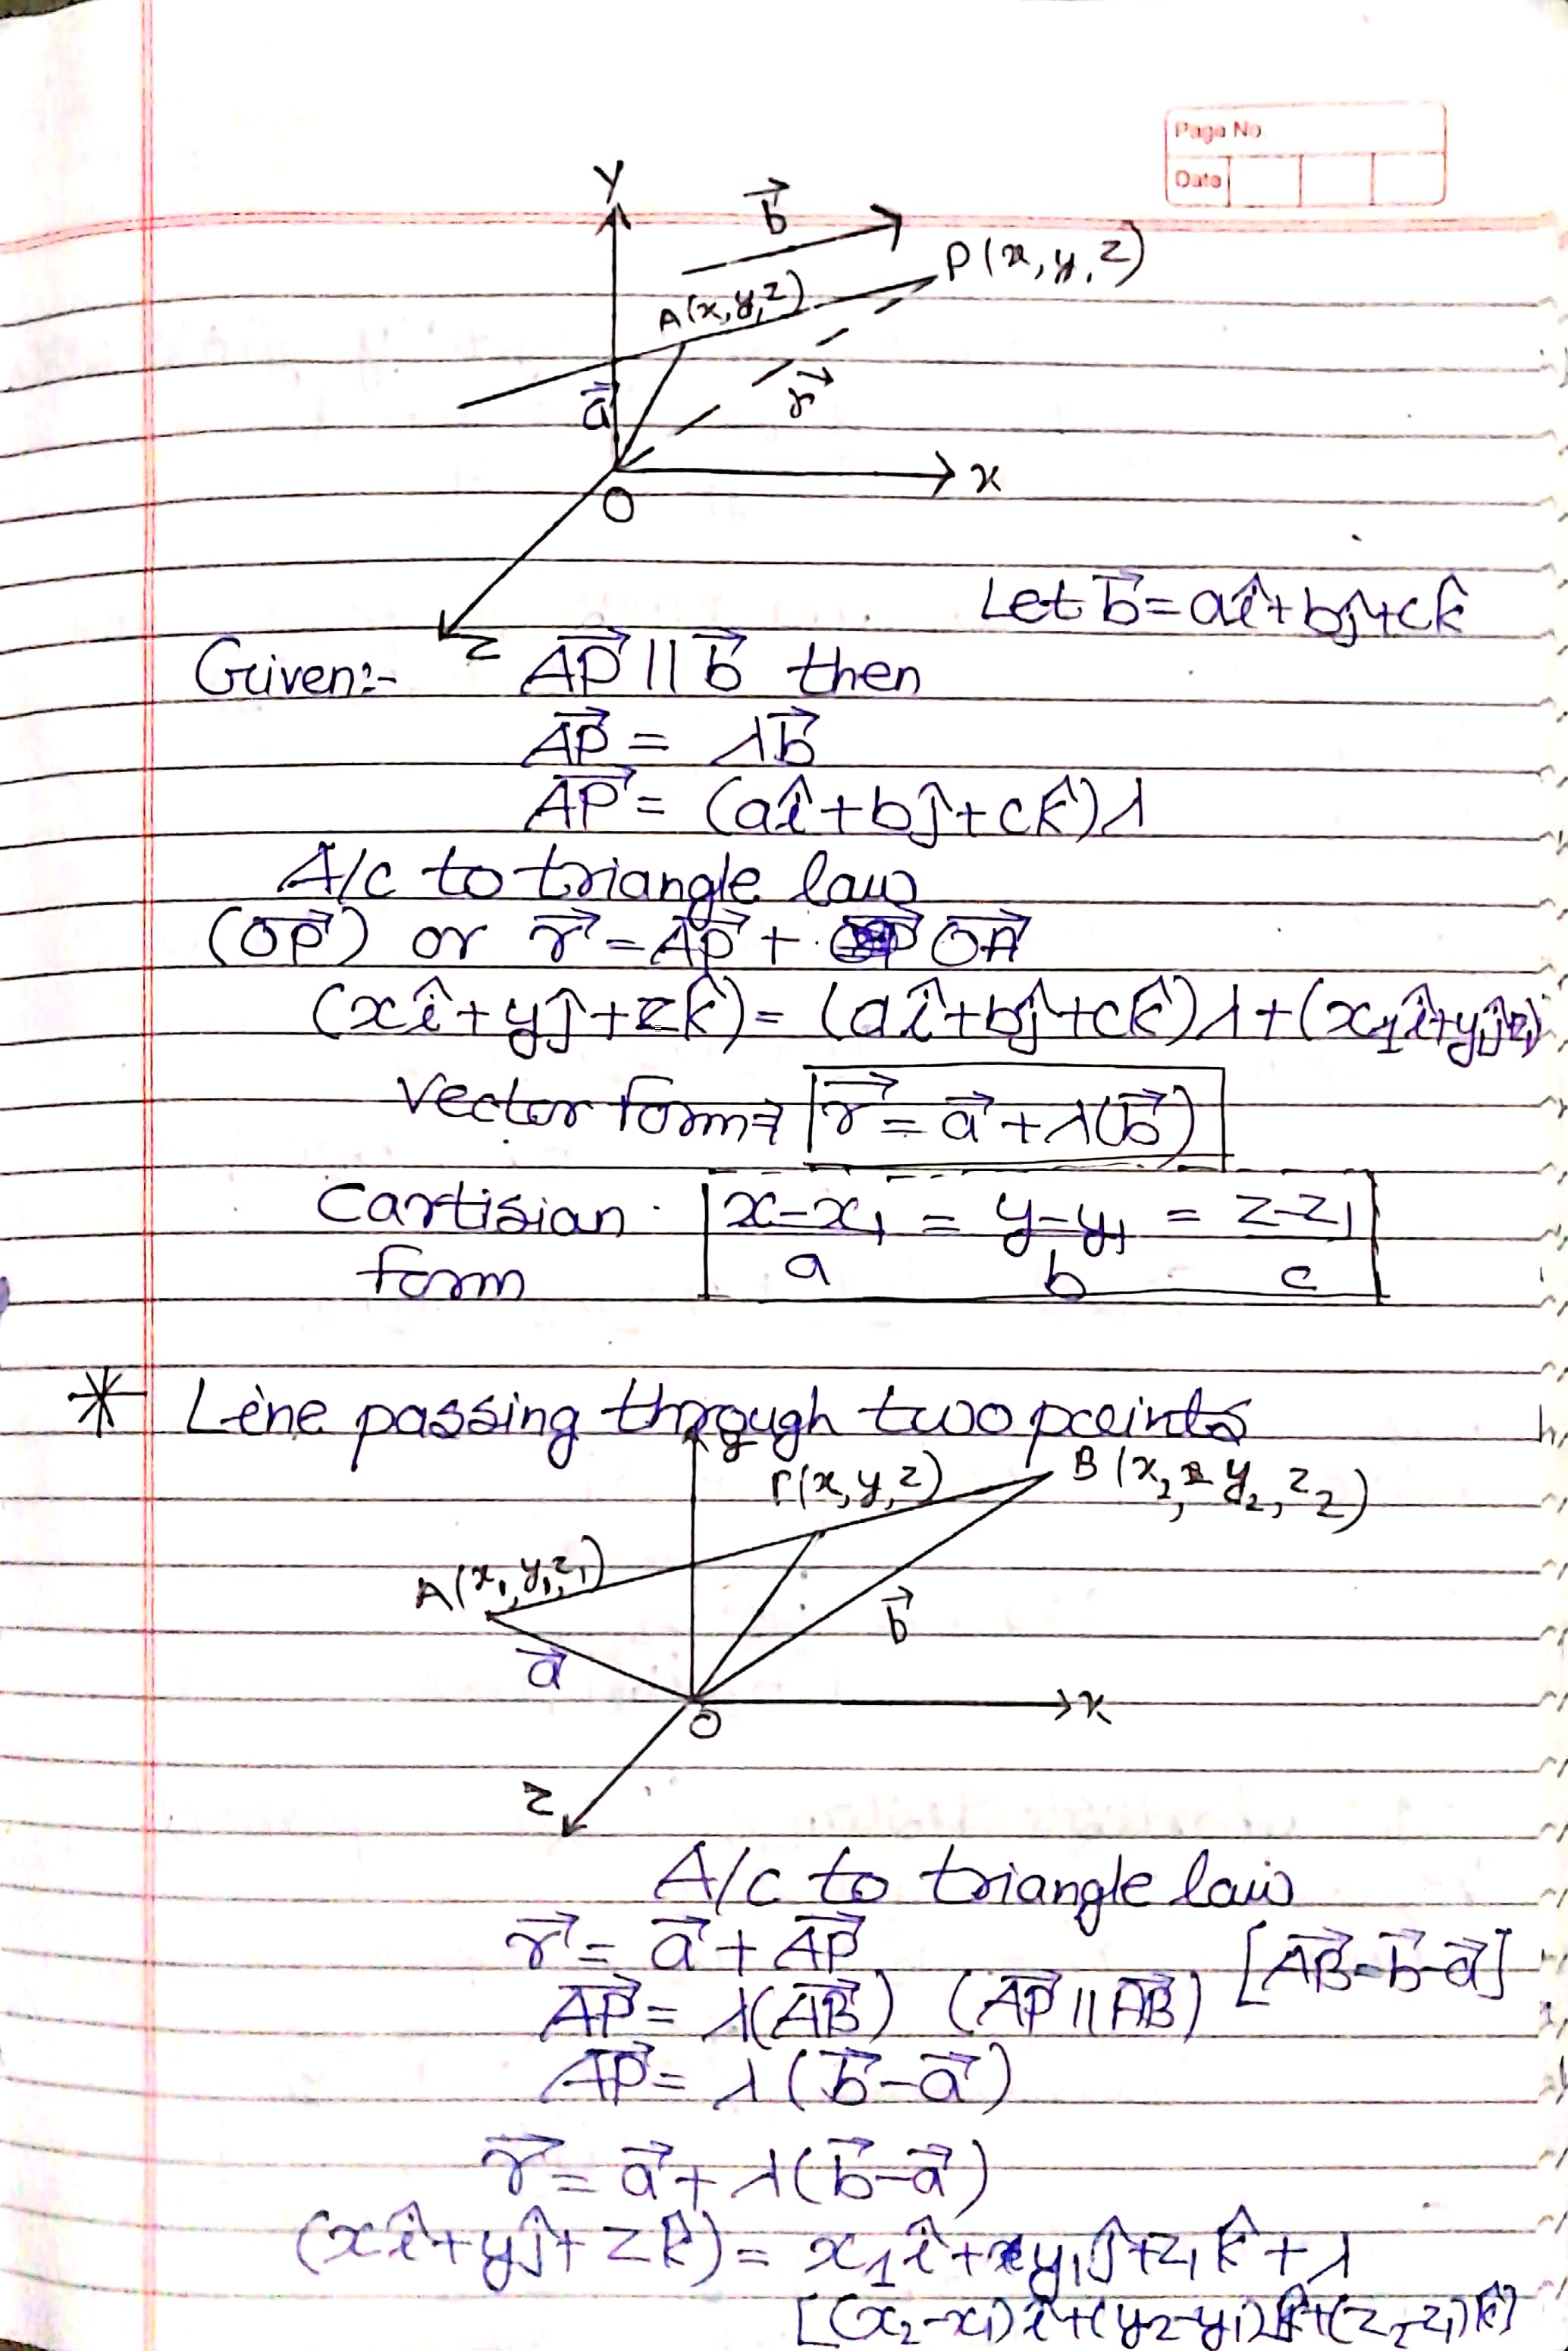 Page No.
Date
Y
b⃗
P(x, y, z)
A(x, y, z)
a⃗
r⃗
x
O
z
Let b⃗ = aî + bĵ + ck̂
Given:- AP⃗ || b⃗ then
AP⃗ = λb⃗
AP⃗ = (aî + bĵ + ck̂)λ
A/c to triangle law
(OP⃗) or r⃗ = AP⃗ + OA⃗
(xî + yĵ + zk̂) = (aî + bĵ + ck̂)λ + (x₁î + y₁ĵ z₁)
Vector form → r⃗ = a⃗ + λ(b⃗)
Cartisian form x-x₁/a = y-y₁/b = z-z₁/c
* Line passing through two points
y
P(x, y, z)
B(x₂, y₂, z₂)
A(x₁, y₁, z₁)
b⃗
a⃗
x
O
z
A/c to triangle law
r⃗ = a⃗ + AP⃗
[AB⃗ = b⃗ - a⃗]
AP⃗ = λ(AB⃗) (AP⃗ || AB⃗)
AP⃗ = λ(b⃗ - a⃗)
r⃗ = a⃗ + λ(b⃗ - a⃗)
(xî + yĵ + zk̂) = x₁î + y₁ĵ + z₁k̂ + λ
[(x₂-x₁)î + (y₂-y₁)ĵ + (z₂-z₁)k̂]